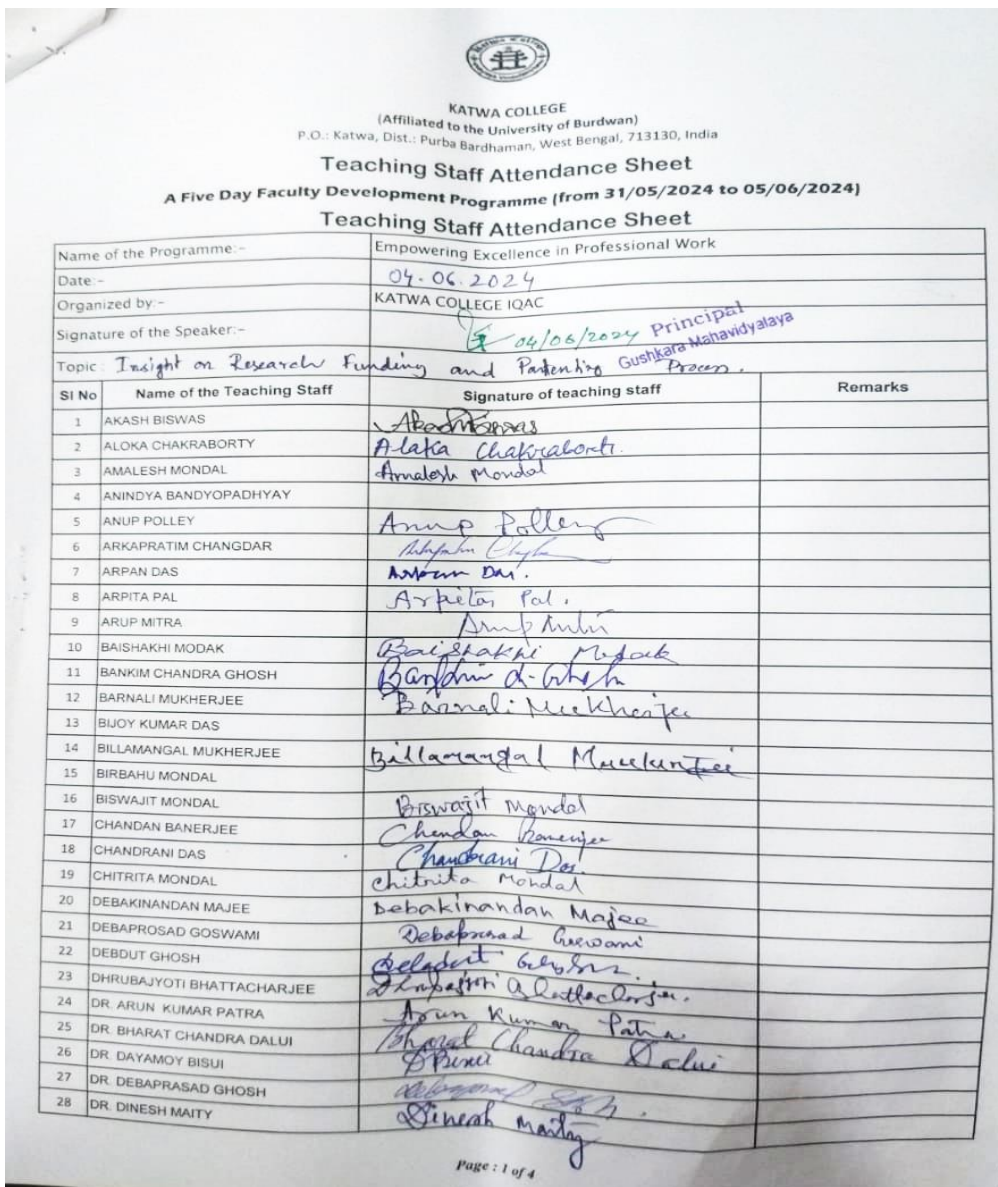 KATWA COLLEGE
(Affiliated to the University of Burdwan)
P.O.: Katwa, Dist.: Purba Bardhaman, West Bengal, 713130, India
Teaching Staff Attendance Sheet
A Five Day Faculty Development Programme (from 31/05/2024 to 05/06/2024)
Teaching Staff Attendance Sheet
Name of the Programme:- Empowering Excellence in Professional Work
Date:- 04.06.2024
Organized by:- KATWA COLLEGE IQAC
Signature of the Speaker:- 04/06/2024 Principal
Gushkara Mahavidyalaya
Topic: Insight on Research Funding and Partenting Process.
Sl No Name of the Teaching Staff Signature of teaching staff Remarks
1 AKASH BISWAS Akash Biswas
2 ALOKA CHAKRABORTY Alaka Chakraborti.
3 AMALESH MONDAL Amalesh Mondal
4 ANINDYA BANDYOPADHYAY
5 ANUP POLLEY Anup Polley
6 ARKAPRATIM CHANGDAR
7 ARPAN DAS Arpan Das.
8 ARPITA PAL Arpita Pal.
9 ARUP MITRA Arup Mitra
10 BAISHAKHI MODAK Baishakhi Modak
11 BANKIM CHANDRA GHOSH Bankim Ch. Ghosh
12 BARNALI MUKHERJEE Barnali Mukherjee
13 BIJOY KUMAR DAS
14 BILLAMANGAL MUKHERJEE Billamangal Mukherjee
15 BIRBAHU MONDAL
16 BISWAJIT MONDAL Biswajit Mondal
17 CHANDAN BANERJEE Chandan Banerjee
18 CHANDRANI DAS Chandrani Das.
19 CHITRITA MONDAL Chitrita Mondal
20 DEBAKINANDAN MAJEE Debakinandan Majee
21 DEBAPROSAD GOSWAMI Debaprosad Goswami
22 DEBDUT GHOSH
23 DHRUBAJYOTI BHATTACHARJEE Dhrubajyoti Bhattacharjee.
24 DR. ARUN KUMAR PATRA Arun Kumar Patra
25 DR. BHARAT CHANDRA DALUI Bharat Chandra Dalui
26 DR. DAYAMOY BISUI DBisui
27 DR. DEBAPRASAD GHOSH
28 DR. DINESH MAITY Dinesh Maity
Page : 1 of 4